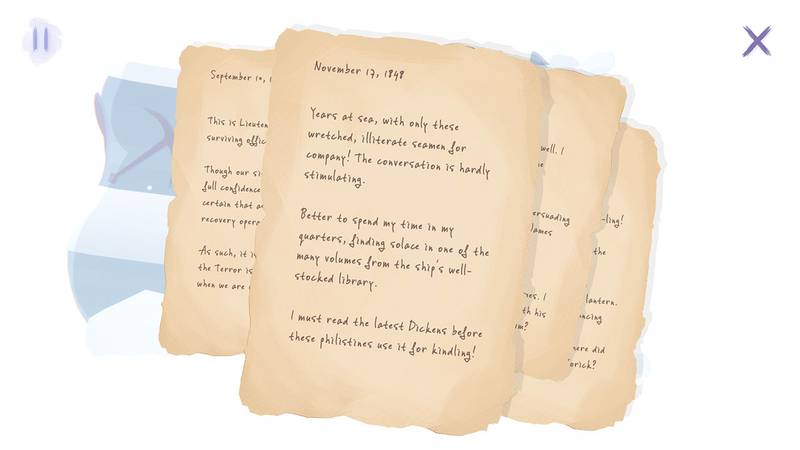 September 10, 1
This is Lieuten
surviving offic
Though our si
full confidence
certain that a
recovery opera
As such, it is
the Terror is
when we are
November 17, 1848
Years at sea, with only these
wretched, illiterate seamen for
company! The conversation is hardly
stimulating.
Better to spend my time in my
quarters, finding solace in one of the
many volumes from the ship's well-
stocked library.
I must read the latest Dickens before
these philistines use it for kindling!
well. I
ersuading
James
es. I
th his
m?
-ling!
the
lantern.
ncing
here did
orick?